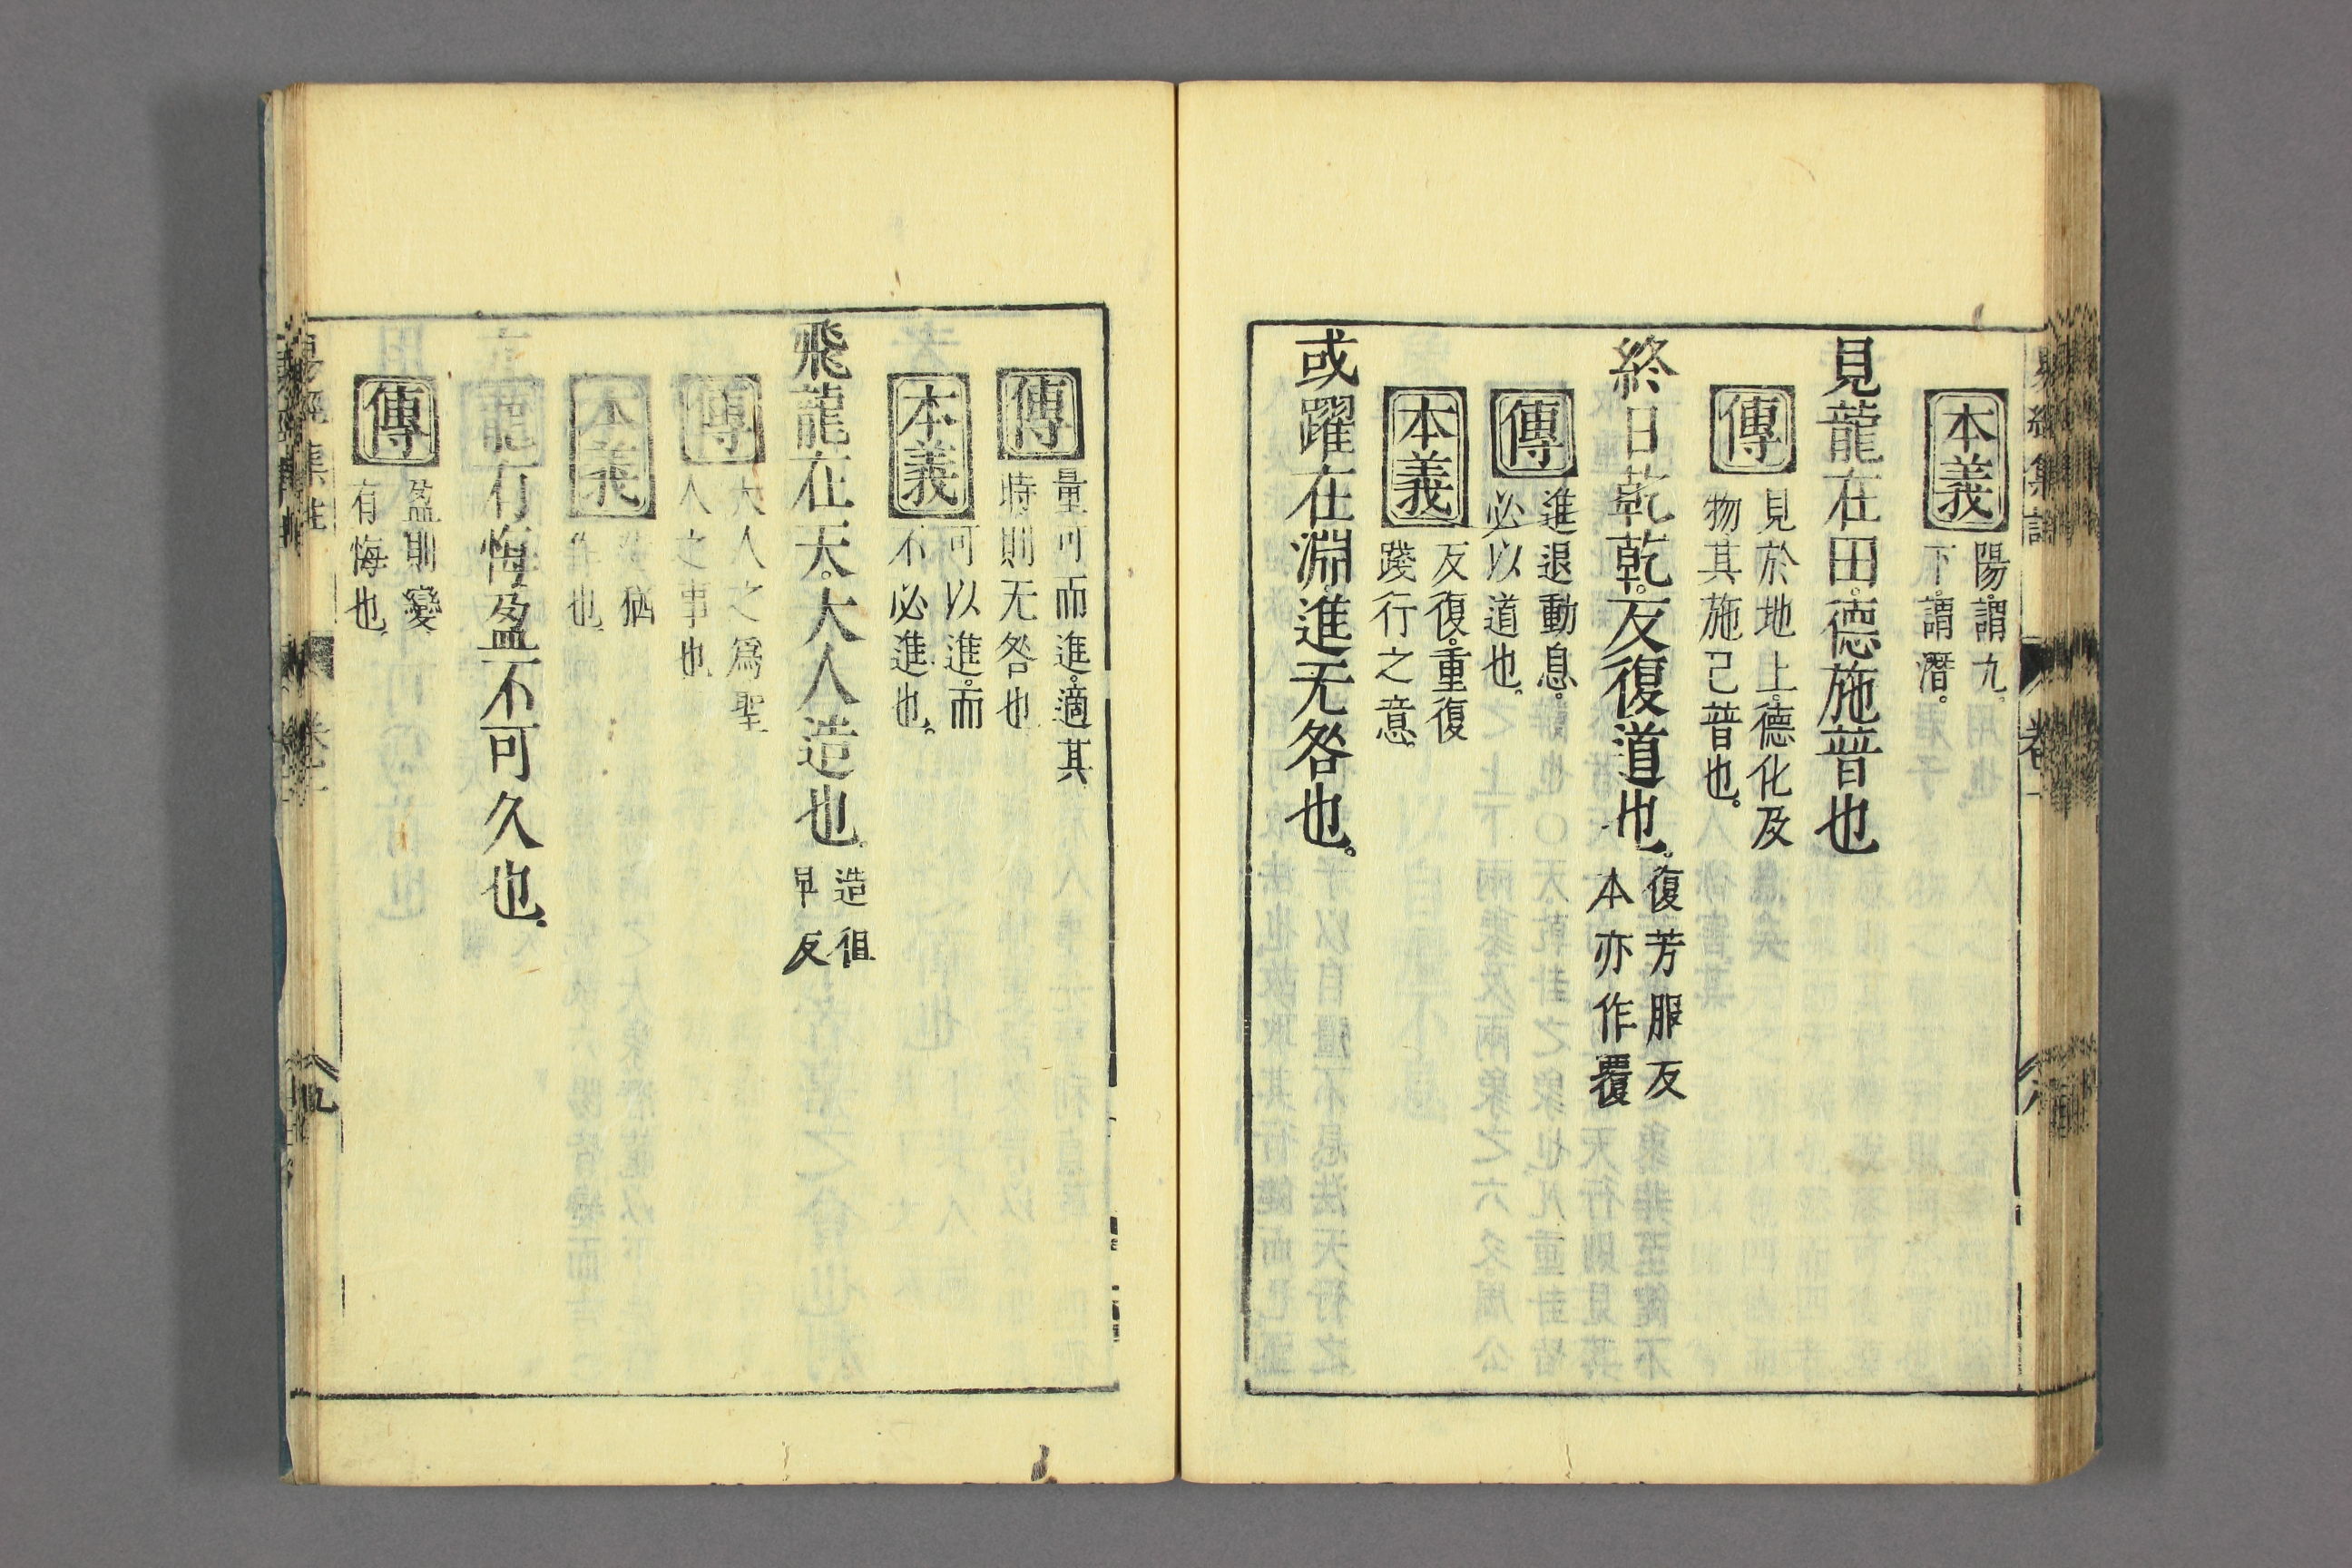 本義 陽謂九。
下謂潛。
見龍在田。德施普也
傳 見於地上。德化及
物其施已普也。
終日乾乾。反復道也。 復芳服反
本亦作覆
傳 進退動息。
必以道也。
本義 反復。重復
踐行之意。
或躍在淵。進无咎也。
傳 量可而進。適其
時則无咎也
本義 可以進。而
不必進也。
飛龍在天。大人造也。 造徂
早反
傳 大人之爲聖
人之事也
本義 造猶
作也。
亢龍有悔盈不可久也。
傳 盈則變
有悔也。
易經集註 卷一 九